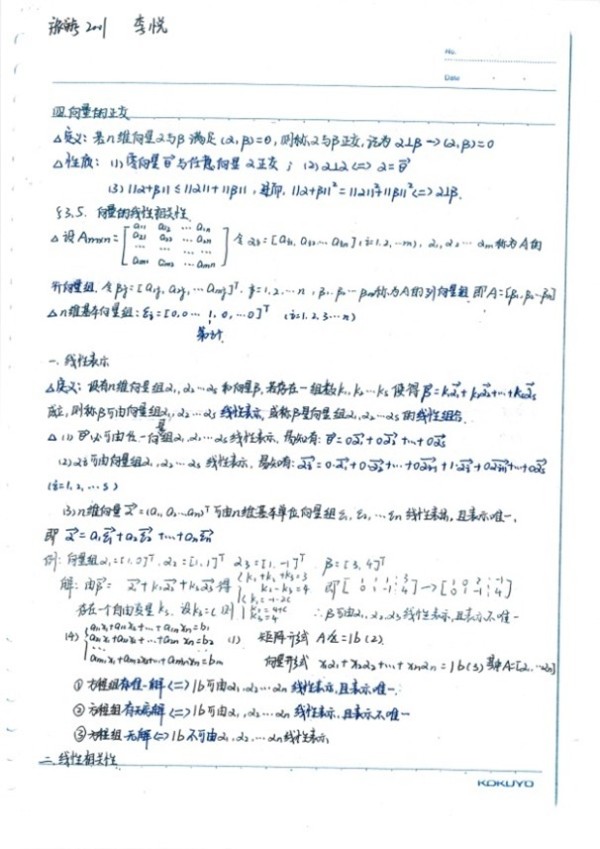 2001 李悦
No.
Date
四.向量的正交
△定义：若n维向量α与β满足(α,β)=0，则称α与β正交，记为α⊥β→(α,β)=0
△性质：(1)零向量0⃗与任意向量α正交；(2)α⊥α⇔α=0⃗
(3)||α+β||≤||α||+||β||，进而，||α+β||²=||α||²+||β||²⇔α⊥β.
§3.5. 向量的线性相关性
△设Am×n=[a11 a12 … a1n; a21 a22 … a2n; … … …; am1 am2 … amn] 令αi=[ai1,ai2…ain](i=1,2,…m)，α1,α2…αm称为A的
行向量组，令βj=[a1j,a2j,…amj]ᵀ，j=1,2,…n，β1,β2…βn称为A的列向量组 即A=[β1,β2…βn]
△n维基本向量：εi=[0,0…1,0,…0]ᵀ (i=1,2,3…n)
第i个
一.线性表示
△定义：设有n维向量组α1,α2…αs和向量β，若存在一组数k1,k2…ks使得β⃗=k1α⃗1+k2α⃗2+…+ksα⃗s
成立，则称β可由向量组α1,α2…αs线性表示，或称β是向量组α1,α2…αs的线性组合.
△(1)0⃗必可由任一向量组α1,α2…αs线性表示，易知有：0⃗=0α⃗1+0α⃗2+…+0α⃗s
(2)αi可由向量组α1,α2…αs线性表示，易知有：α⃗i=0·α⃗1+0α⃗2+…+0α⃗i-1+1·α⃗i+0α⃗i+1+…+0α⃗s
(i=1,2,…s)
(3)n维向量α⃗=(a1,a2,…an)ᵀ可由n维基本单位向量组ε1,ε2,…εn线性表出，且表示唯一，
即α⃗=a1ε⃗1+a2ε⃗2+…+anε⃗n
例：向量组α1=[1,0]ᵀ，α2=[1,1]ᵀ α3=[1,-1]ᵀ β=[3,4]ᵀ
解：由β⃗= 得{k1+k2+k3=3 k2-k3=4 即[1 1 1 3; 0 1 -1 4]→[1 0 2 -1; 0 1 -1 4]
存在一个自由变量k3，设k3=c 则{k1=-1-2c k2=4+c ∴β可由α1,α2,α3线性表示，且表示不唯一
(4){a11x1+a12x2+…+a1nxn=b1 a21x1+a22x2+…+a2nxn=b2 (1) 矩阵形式 Ax=b(2).
am1x1+am2x2+…+amnxn=bm 向量形式 x1α1+x2α2+…+xnαn=b(3) 其中A=[α1…αn]
①方程组有唯一解⇔b可由α1,α2…αn线性表示，且表示唯一.
②方程组有无穷解⇔b可由α1,α2…αn线性表示，且表示不唯一
③方程组无解⇔b不可由α1,α2,…αn线性表示
二.线性相关性
KOKUYO